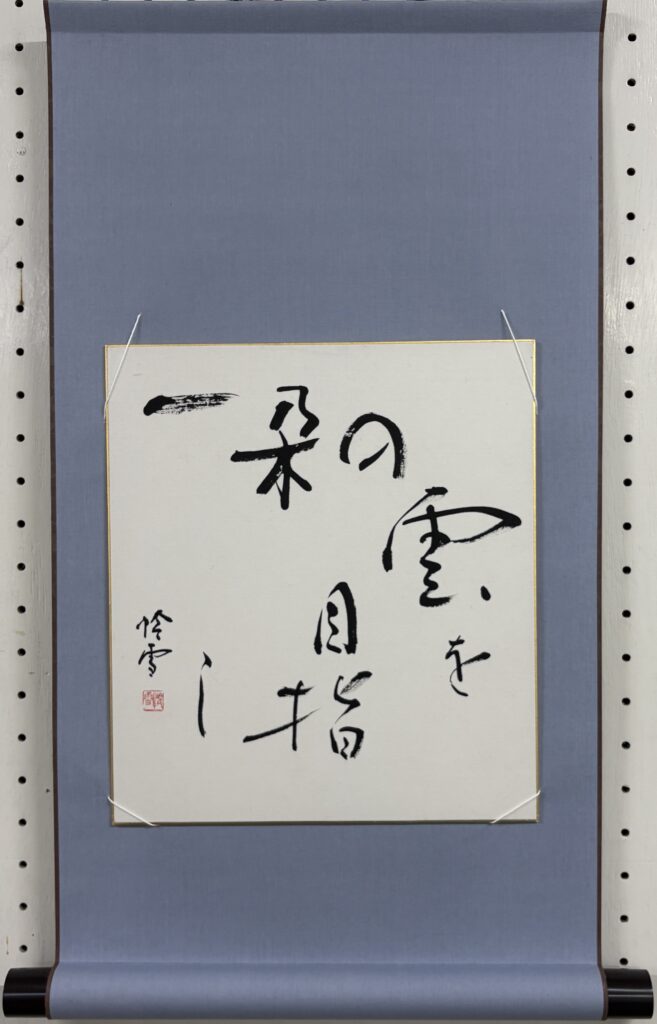 一朶の
雲を
目指し
怜雪